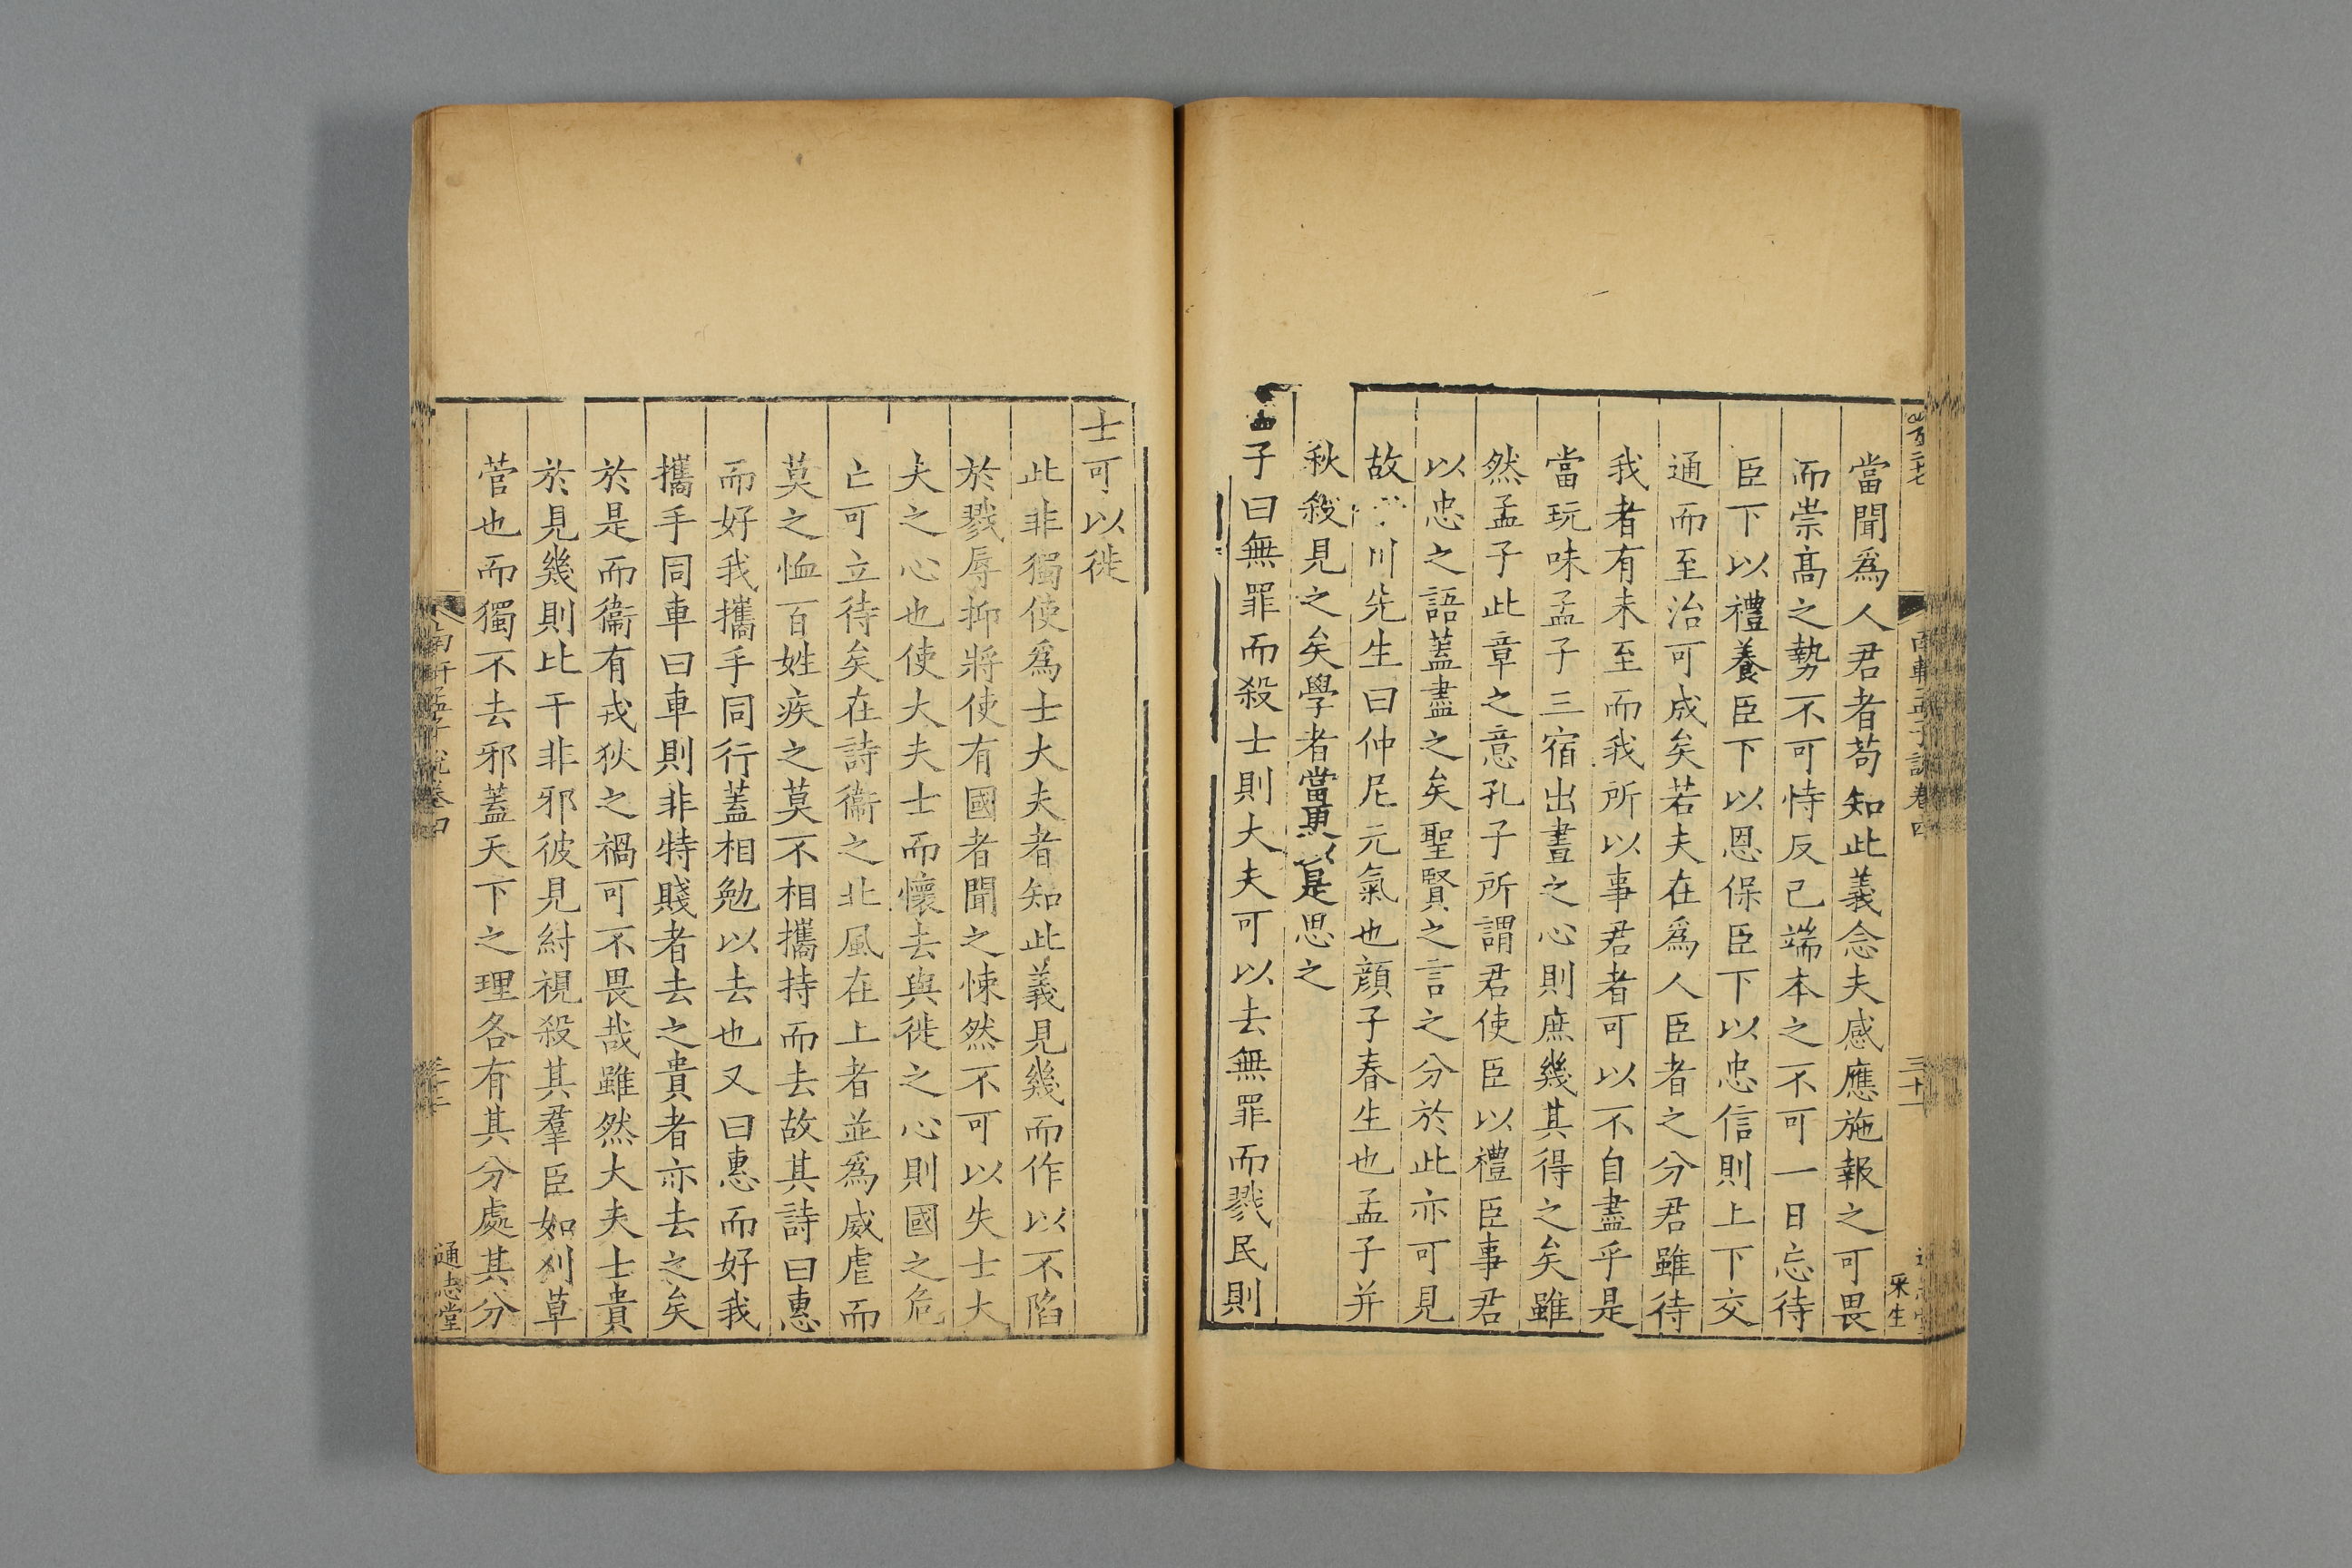 當聞爲人君者苟知此義念夫感應施報之可畏
而崇髙之勢不可恃反己端本之不可一日忘待
臣下以禮養臣下以恩保臣下以忠信則上下交
通而至治可成矣若夫在爲人臣者之分君雖待
我者有未至而我所以事君者可以不自盡乎是
當玩味孟子三宿出晝之心則庶幾其得之矣雖
然孟子此章之意孔子所謂君使臣以禮臣事君
以忠之語蓋盡之矣聖賢之言之分於此亦可見
故川先生曰仲尼元氣也顔子春生也孟子并
秋殺見之矣學者當更以是思之
孟子曰無罪而殺士則大夫可以去無罪而戮民則
士可以徙
此非獨使爲士大夫者知此義見幾而作以不陷
於戮辱抑將使有國者聞之悚然不可以失士大
夫之心也使大夫士而懷去與徙之心則國之危
亡可立待矣在詩衞之北風在上者並爲威虐而
莫之恤百姓疾之莫不相攜持而去故其詩曰惠
而好我攜手同行蓋相勉以去也又曰惠而好我
攜手同車曰車則非特賤者去之貴者亦去之矣
於是而衞有戎狄之禍可不畏哉雖然大夫士貴
於見幾則比干非邪彼見紂視殺其羣臣如刈草
菅也而獨不去邪蓋天下之理各有其分處其分
南軒孟子說卷四
三十一
通志堂